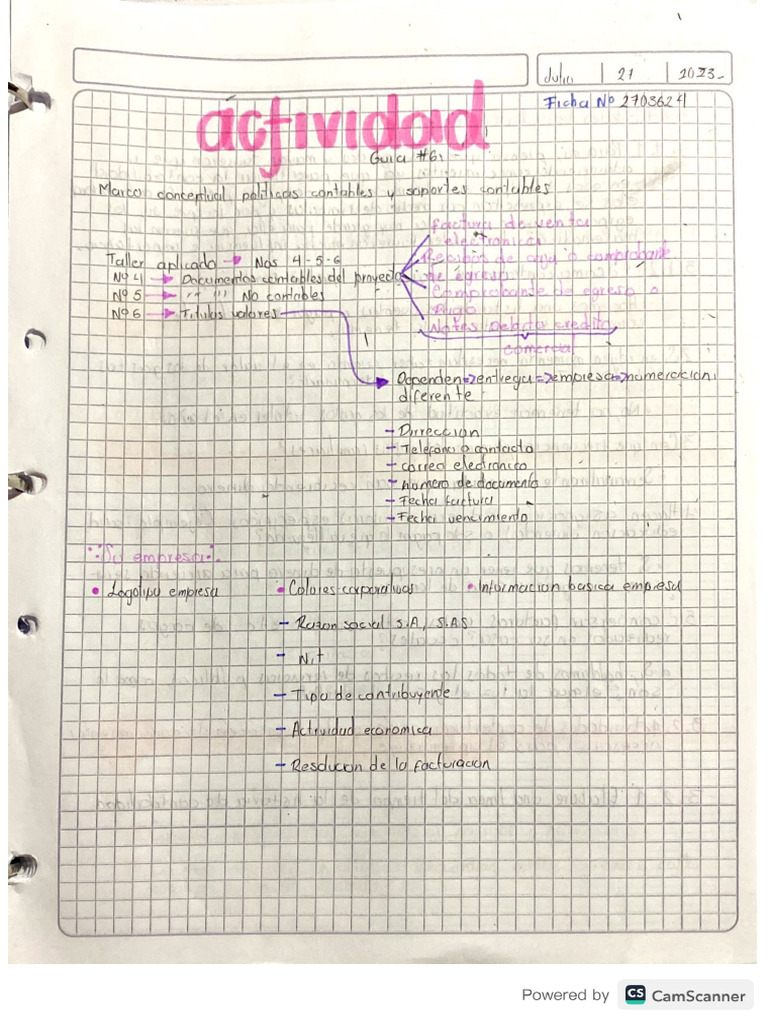 Julio | 21 | 2023-
Ficha Nº 2703624
actividad
Guia #6:
Marco conceptual politicas contables y soportes contables
Factura de venta
electronica
Taller aplicado Nos 4-5-6
Recibos de caja o comprobante
Nº 4 Documentos contables del proyecto
de egreso
Nº 5 " " " No contables
Comprobante de egreso o
Pago
Nº 6 Titulos valores
Notas Debito credito
comercial
Dependen entrega empresa numeracion
diferente
- Dirreccion
- Telefono o contacto
- correo electronico
- numero de documento
- Fecha factura
- Fecha vencimiento
Su empresa
• Logotipo empresa • Colores corporativos • Informacion basica empresa
- Razon social S.A, S.A.S
- Nit
- Tipo de contribuyente
- Actividad economica
- Resolucion de la facturacion
Powered by CS CamScanner